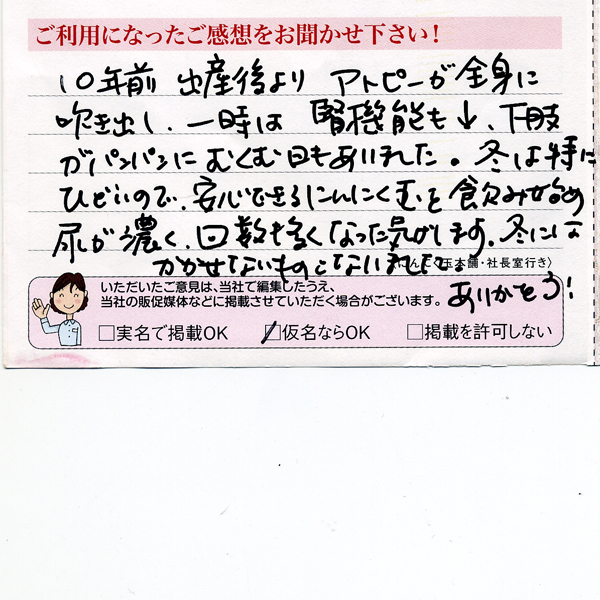 ご利用になったご感想をお聞かせ下さい!
10年前 出産後より アトピーが全身に
吹き出し、一時は 腎機能も↓、下肢
がパンパンにむくむ日もありました。冬は特に
ひどいので、安心できるにんにくをと飲み始め
尿が濃く、回数も多くなった気がします。冬には
かかせないものになりました。
にんにく玉本舗・社長室行き〉
ありがとう!
いただいたご意見は、当社で編集したうえ、
当社の販促媒体などに掲載させていただく場合がございます。
□実名で掲載OK □仮名ならOK □掲載を許可しない